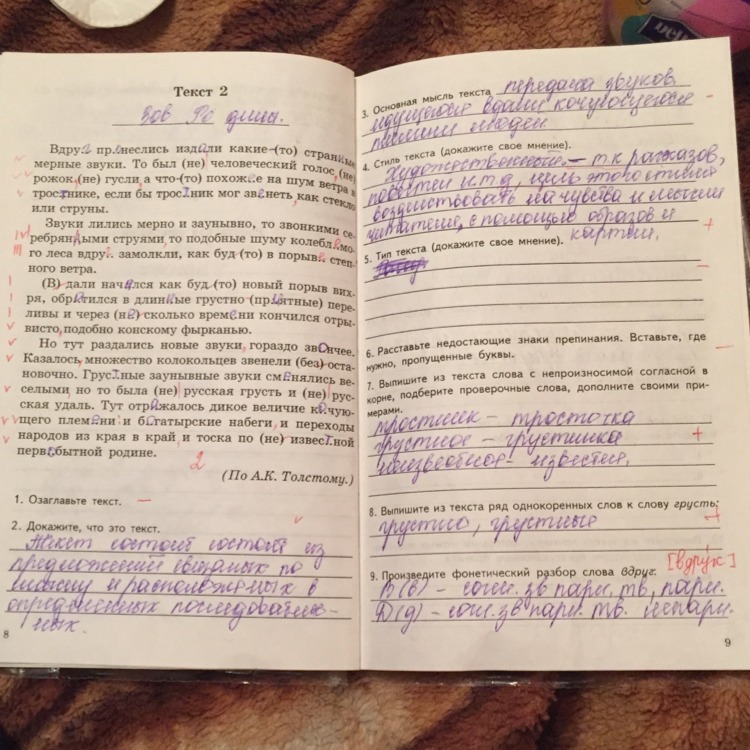 Текст 2
Зов Родины.
Вдруг пронеслись издали какие-(то) странные
мерные звуки. То был (не) человеческий голос, (не)
рожок, (не) гусли, а что-(то) похожее на шум ветра в
тростнике, если бы тростник мог звенеть, как стекло
или струны.
Звуки лились мерно и заунывно, то звонкими се-
ребряными струями, то подобные шуму колеблемо-
го леса вдруг замолкли, как буд-(то) в порыве степ-
ного ветра.
(В) дали начался как буд-(то) новый порыв вих-
ря, обратился в длинные грустно-(приятные) пере-
ливы и через (не) сколько времени кончился отры-
висто, подобно конскому фырканью.
Но тут раздались новые звуки, гораздо звонче.
Казалось, множество колокольцев звенели (без) оста-
новочно. Грустные заунывные звуки сменялись ве-
селыми, но то была (не) русская грусть и (не) рус-
ская удаль. Тут отражалось дикое величие кочую-
щего племени и богатырские набеги, и переходы
народов из края в край, и тоска по (не) известной
первобытной родине.
2
(По А.К. Толстому.)
1. Озаглавьте текст.
2. Докажите, что это текст.
Текст состоит состоит из
предложений связных по
смыслу и расположенных в
определенных последователь-
ных.
8
3. Основная мысль текста передача звуков
идущегося вдали кочующегося
племени людей
4. Стиль текста (докажите свое мнение).
Художественный – т.к рассказов,
повести и.т.д, цель этого стиля
воздействовать на чувства и мысли
читателя, с помощью образов и
картин.
5. Тип текста (докажите свое мнение).
6. Расставьте недостающие знаки препинания. Вставьте, где
нужно, пропущенные буквы.
7. Выпишите из текста слова с непроизносимой согласной в
корне, подберите проверочные слова, дополните своими при-
мерами.
тростник – тросточка
грустное – грустинка
неизвестная – известия.
8. Выпишите из текста ряд однокоренных слов к слову грусть:
грустно, грустные
9. Произведите фонетический разбор слова вдруг. [вдрук]
В (в) – согл. зв парн. тв, парн.
Д (д) – согл. зв парн. тв. непарн.
9